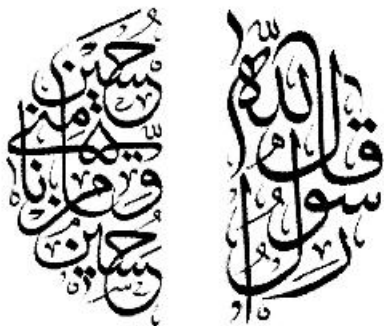 قال رسول الله
حسين مني وأنا من حسين